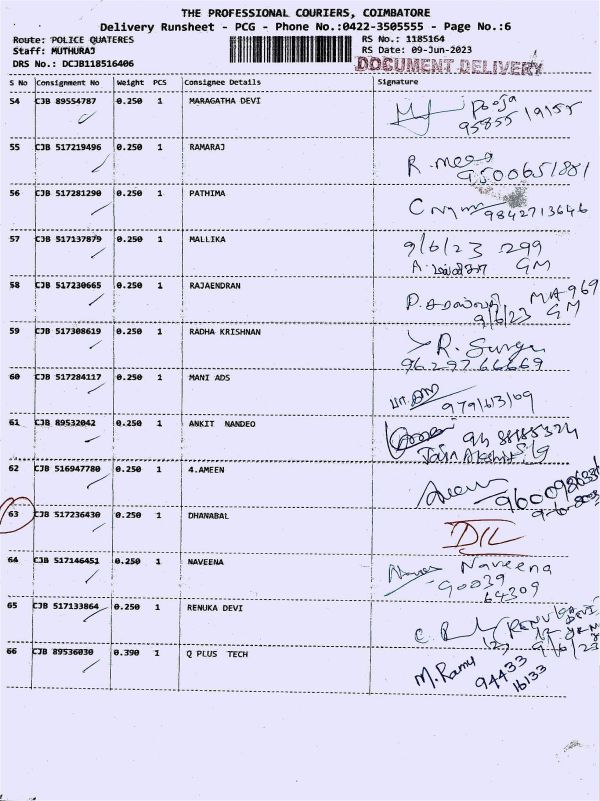 THE PROFESSIONAL COURIERS, COIMBATORE
Delivery Runsheet - PCG - Phone No.:0422-3505555 - Page No.:6
Route: POLICE QUATERES RS No.: 1185164
Staff: MUTHURAJ RS Date: 09-Jun-2023
DRS No.: DCJB118516406 DOCUMENT DELIVERY
S No Consignment No Weight PCS Consignee Details Signature
54 CJB 89554787 0.250 1 MARAGATHA DEVI Pooja
95855 19155
55 CJB 517219496 0.250 1 RAMARAJ R.
9500651881
56 CJB 517281290 0.250 1 PATHIMA C
9842713646
57 CJB 517137879 0.250 1 MALLIKA 9/6/23 299
A. மல்லிகா GM
58 CJB 517230665 0.250 1 RAJAENDRAN P. MA969
9/6/23 GM
59 CJB 517308619 0.250 1 RADHA KRISHNAN R. Surya
96297 66669
60 CJB 517284117 0.250 1 MANI ADS
61 CJB 89532042 0.250 1 ANKIT NANDEO
62 CJB 516947780 0.250 1 4.AMEEN Ameen
63 CJB 517236430 0.250 1 DHANABAL D/L
64 CJB 517146451 0.250 1 NAVEENA Naveena
90039
64309
65 CJB 517133864 0.250 1 RENUKA DEVI C. RENUKA
DEVI
9/6/23
66 CJB 89536030 0.390 1 Q PLUS TECH M. Ramu
94433
16133